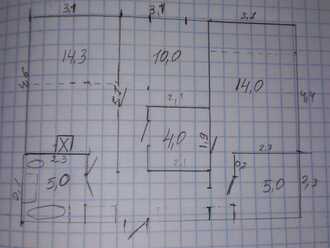 3,1 3,1
14,3 10,0
14,0
5,2
4,4
2,1
4,0
1,9
2,1
X
2,3 2,3
0,2
5,0 5,0
2,3